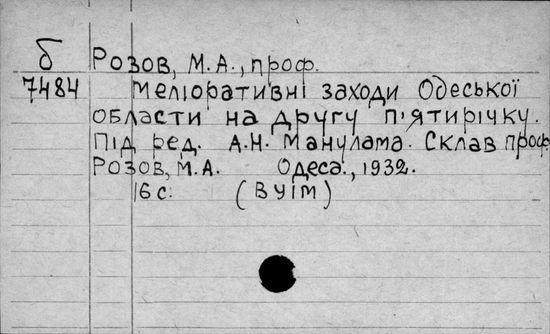 б Розов, М.А., проф.
7484 Меліоративні заходи Одеської
области на другу п'ятирічку.
Під ред. А.Н. Манулама. Склав проф
Розов, М.А. Одеса., 1932.
16 с. (ВУІМ)